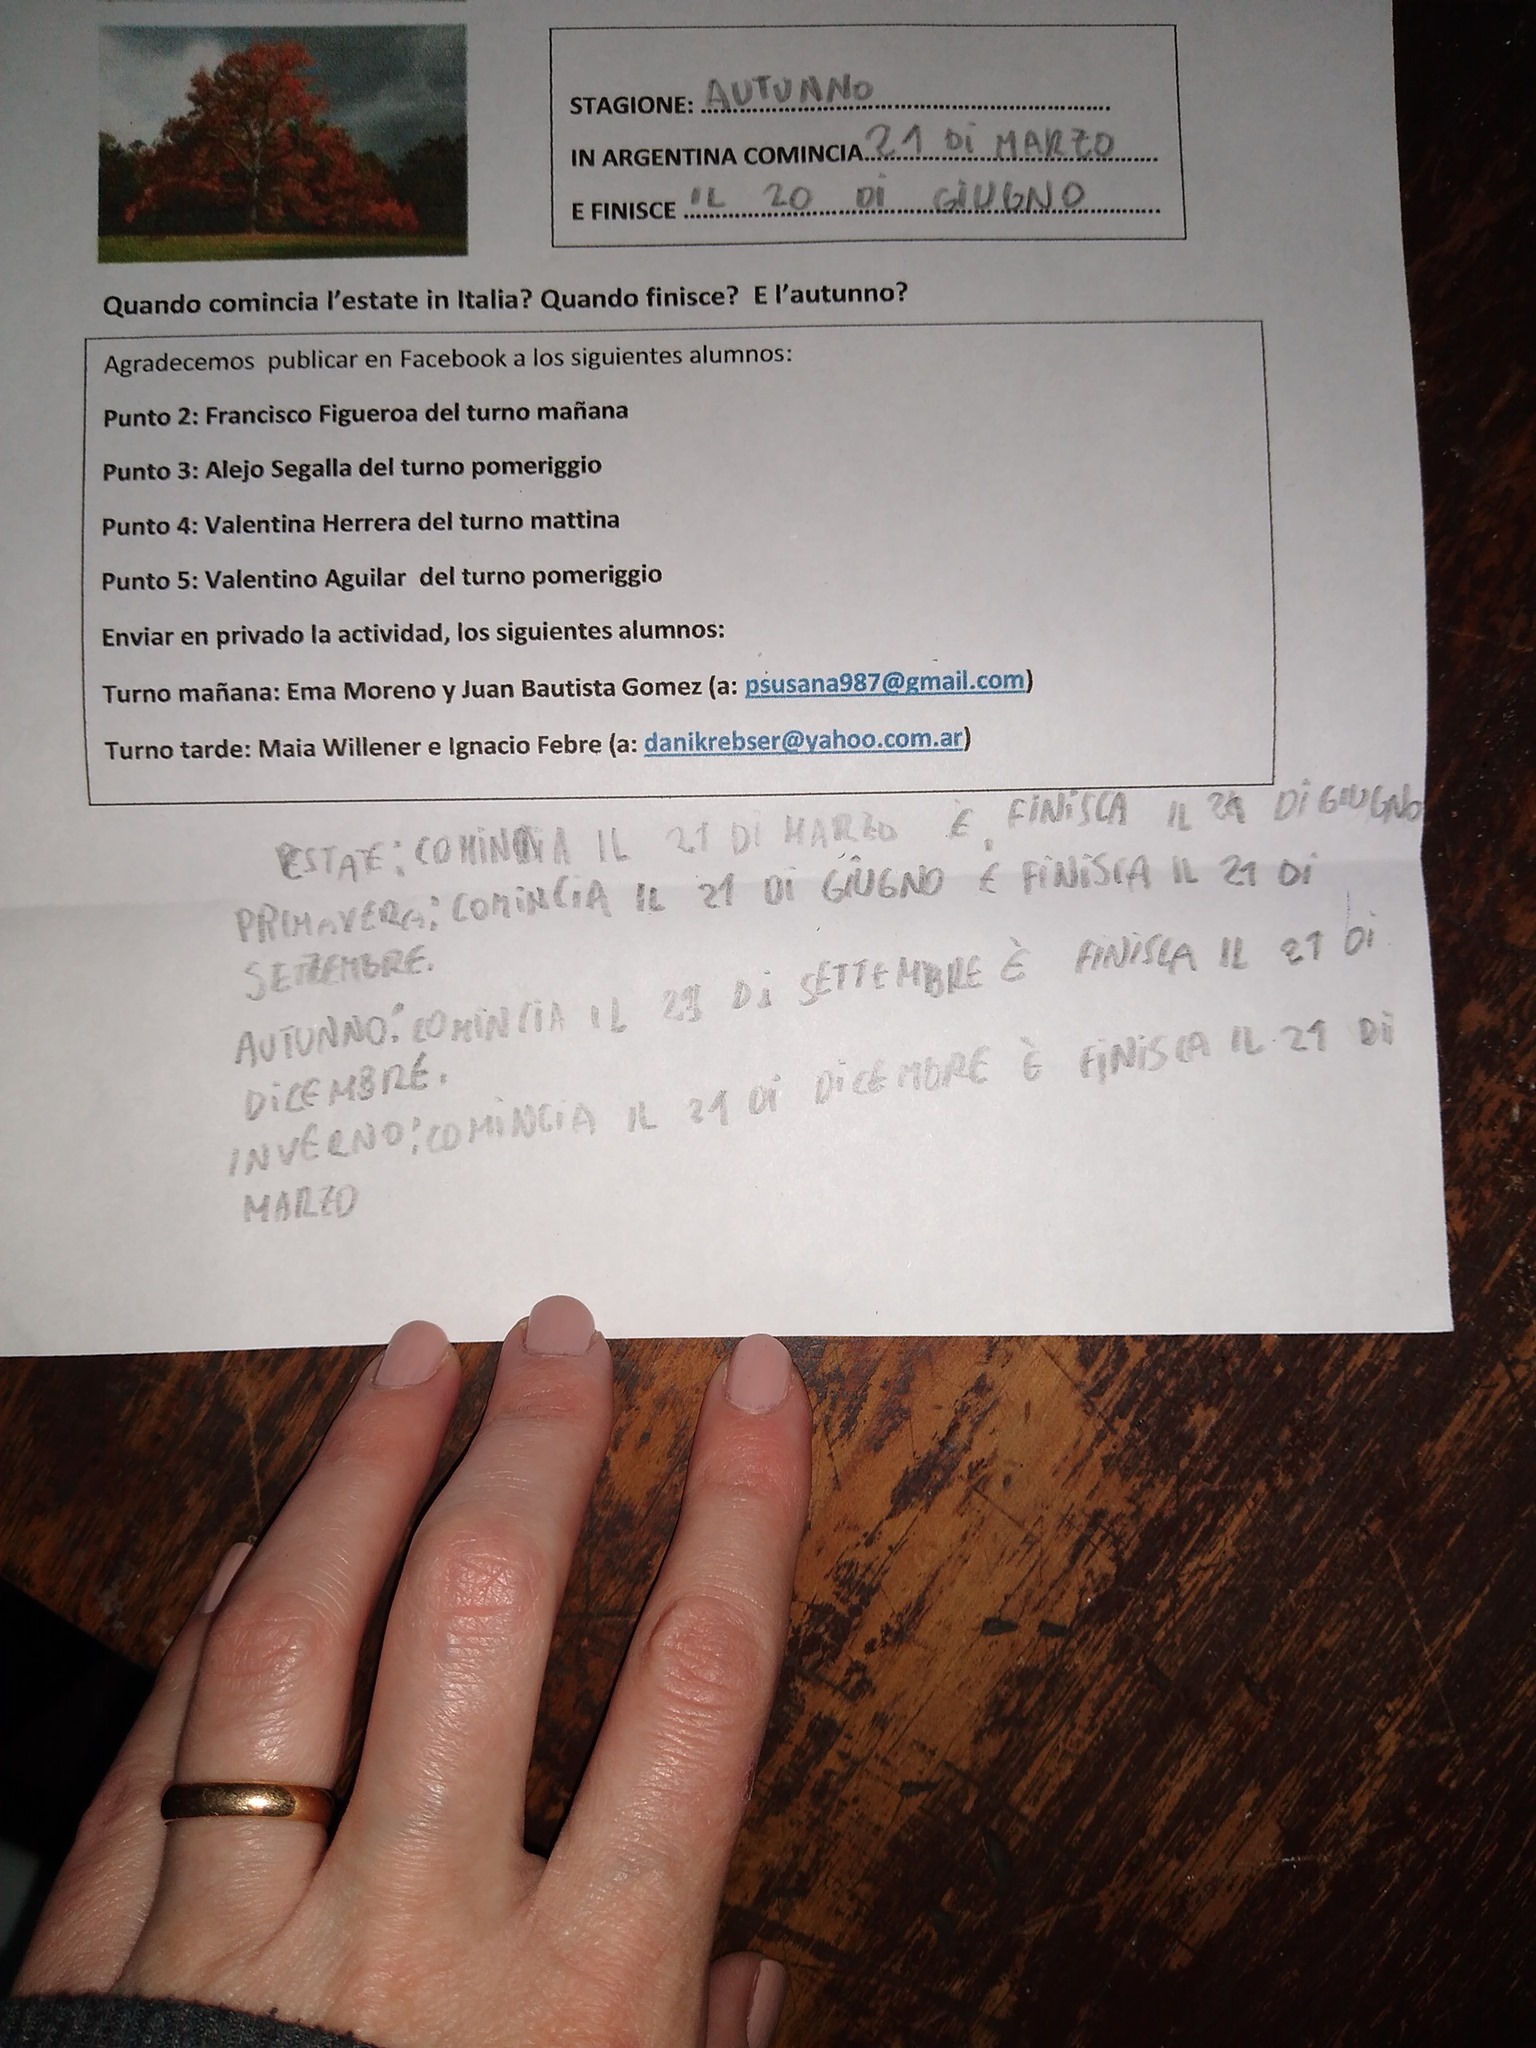 STAGIONE: AUTUNNO
IN ARGENTINA COMINCIA 21 DI MARZO
E FINISCE IL 20 DI GIUGNO
Quando comincia l'estate in Italia? Quando finisce? E l'autunno?
Agradecemos publicar en Facebook a los siguientes alumnos:
Punto 2: Francisco Figueroa del turno mañana
Punto 3: Alejo Segalla del turno pomeriggio
Punto 4: Valentina Herrera del turno mattina
Punto 5: Valentino Aguilar del turno pomeriggio
Enviar en privado la actividad, los siguientes alumnos:
Turno mañana: Ema Moreno y Juan Bautista Gomez (a: psusana987@gmail.com)
Turno tarde: Maia Willener e Ignacio Febre (a: danikrebser@yahoo.com.ar)
ESTATE: COMINCIA IL 21 DI MARZO E FINISCA IL 21 DI GIUGNO
PRIMAVERA: COMINCIA IL 21 DI GIUGNO E FINISCA IL 21 DI
SETTEMBRE.
AUTUNNO: COMINCIA IL 21 DI SETTEMBRE È FINISCA IL 21 DI
DICEMBRE.
INVERNO: COMINCIA IL 21 DI DICEMBRE È FINISCA IL 21 DI
MARZO